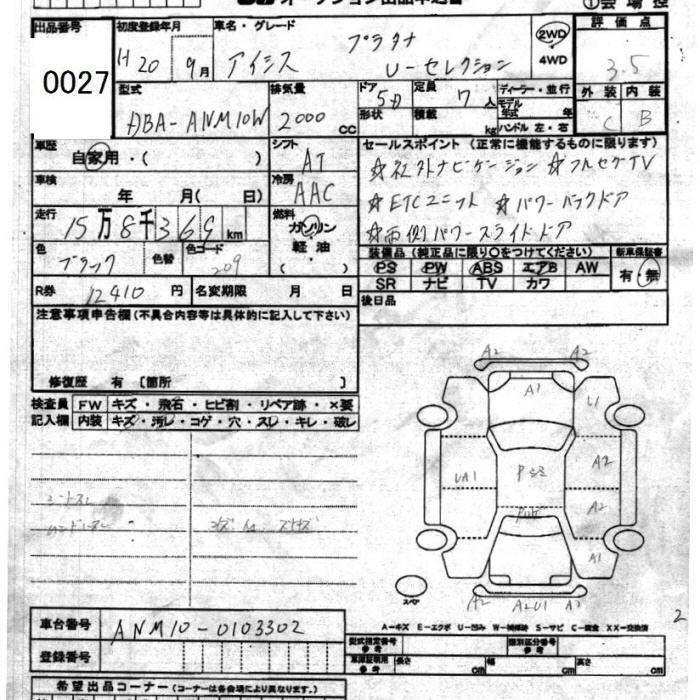 出品番号 初度登録年月 車名・グレード 評価点
0027 H20 9月 アイシス プラタナ 2WD
Uーセレクション 4WD 3.5
型式 排気量 ドア 5D 定員 7人 ディーラー・並行 外装 内装
DBA-ANM10W 2000cc 形状 積載 kg モデル年式 年 C B
ハンドル 左・右
車歴 シフト セールスポイント (正常に機能するものに限ります)
自家用・( ) AT ☆社外ナビゲーション ☆フルセグTV
車検 冷房
年 月( 日) AAC ☆ETCユニット ☆パワーバックドア
走行 燃料
15万8千369km ガソリン ☆両側パワースライドドア
色 色替 色コード 軽油 装備品 (純正品に限り○をつけてください) 新車保証書
ブラック 209 ( ) PS PW ABS エアB AW 有・無
R券 12410円 名変期限 月 日 SR ナビ TV カワ
注意事項申告欄 (不具合内容等は具体的に記入して下さい) 後日品
修復歴 有 [箇所 ]
検査員 FW キズ・飛石・ヒビ割・リペア跡・×要
記入欄 内装 キズ・汚レ・コゲ・穴・スレ・キレ・破レ
A2 A2
A1 U1
UA1 A2
A2
A1
スペア
A2 A2U1 A2
A-キズ E-エクボ U-凹み W-補修跡 S-サビ C-腐食 XX-交換済
2
車台番号 ANM10-0103302 型式指定番号 類別区分番号
登録番号 車庫証明用 長さ cm 幅 cm 高さ cm
希望出品コーナー (コーナーは各会場により異なります)